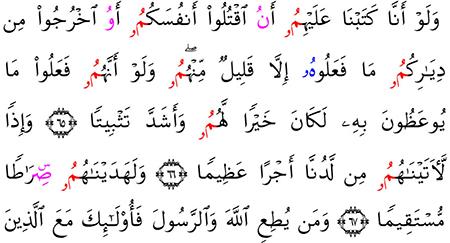 وَلَوۡ أَنَّا كَتَبۡنَا عَلَيۡهِمُۥ أَنُ ٱقۡتُلُواْ أَنفُسَكُمُۥ أَوُ ٱخۡرُجُواْ مِن
دِيَٰرِكُمُۥ مَا فَعَلُوهُۥ إِلَّا قَلِيلٞ مِّنۡهُمُۥۖ وَلَوۡ أَنَّهُمُۥ فَعَلُواْ مَا
يُوعَظُونَ بِهِۦ لَكَانَ خَيۡرٗا لَّهُمُۥ وَأَشَدَّ تَثۡبِيتٗا ٦٥ وَإِذٗا
لَّأٓتَيۡنَٰهُمُۥ مِن لَّدُنَّا أَجۡرًا عَظِيمٗا ٦٦ وَلَهَدَيۡنَٰهُمُۥ صِرَٰطٗا
مُّسۡتَقِيمٗا ٦٧ وَمَن يُطِعِ ٱللَّهَ وَٱلرَّسُولَ فَأُوْلَٰٓئِكَ مَعَ ٱلَّذِينَ